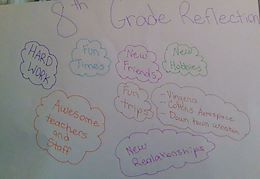 8th Grade Reflection
HARD
WORK
Fun
Times
New
Friends
New
Hobbies
Awesome
teachers
and
Staff
Fun
trips
- Virginia
- Collins Aerospace
- Down town weston
New
Realationships